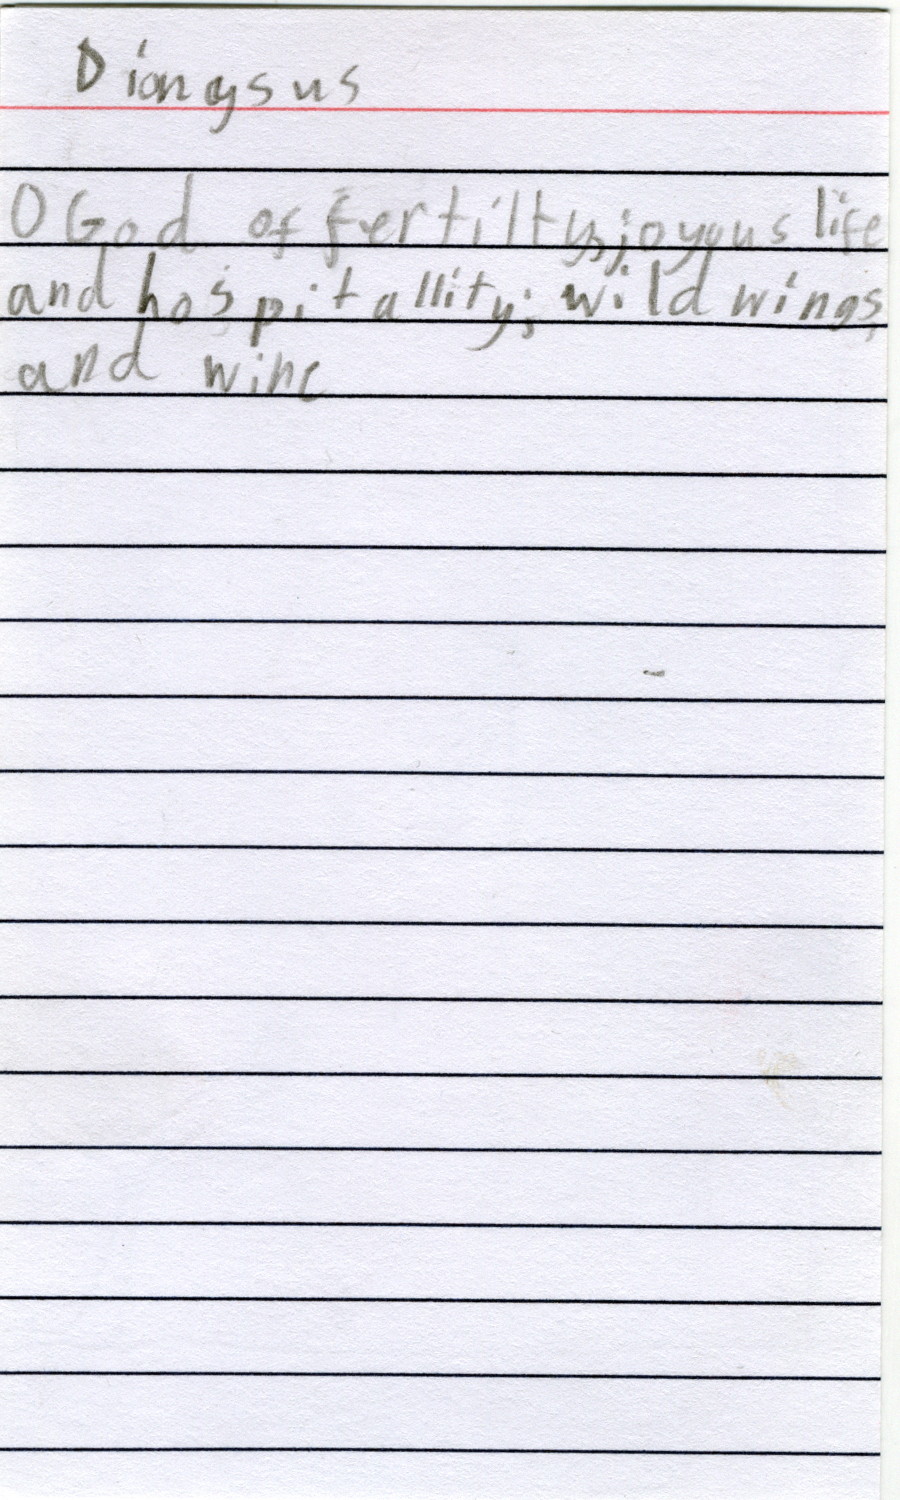 Dionysus
O God of fertilty, joyous life
and hospitallity; wild wings,
and wine